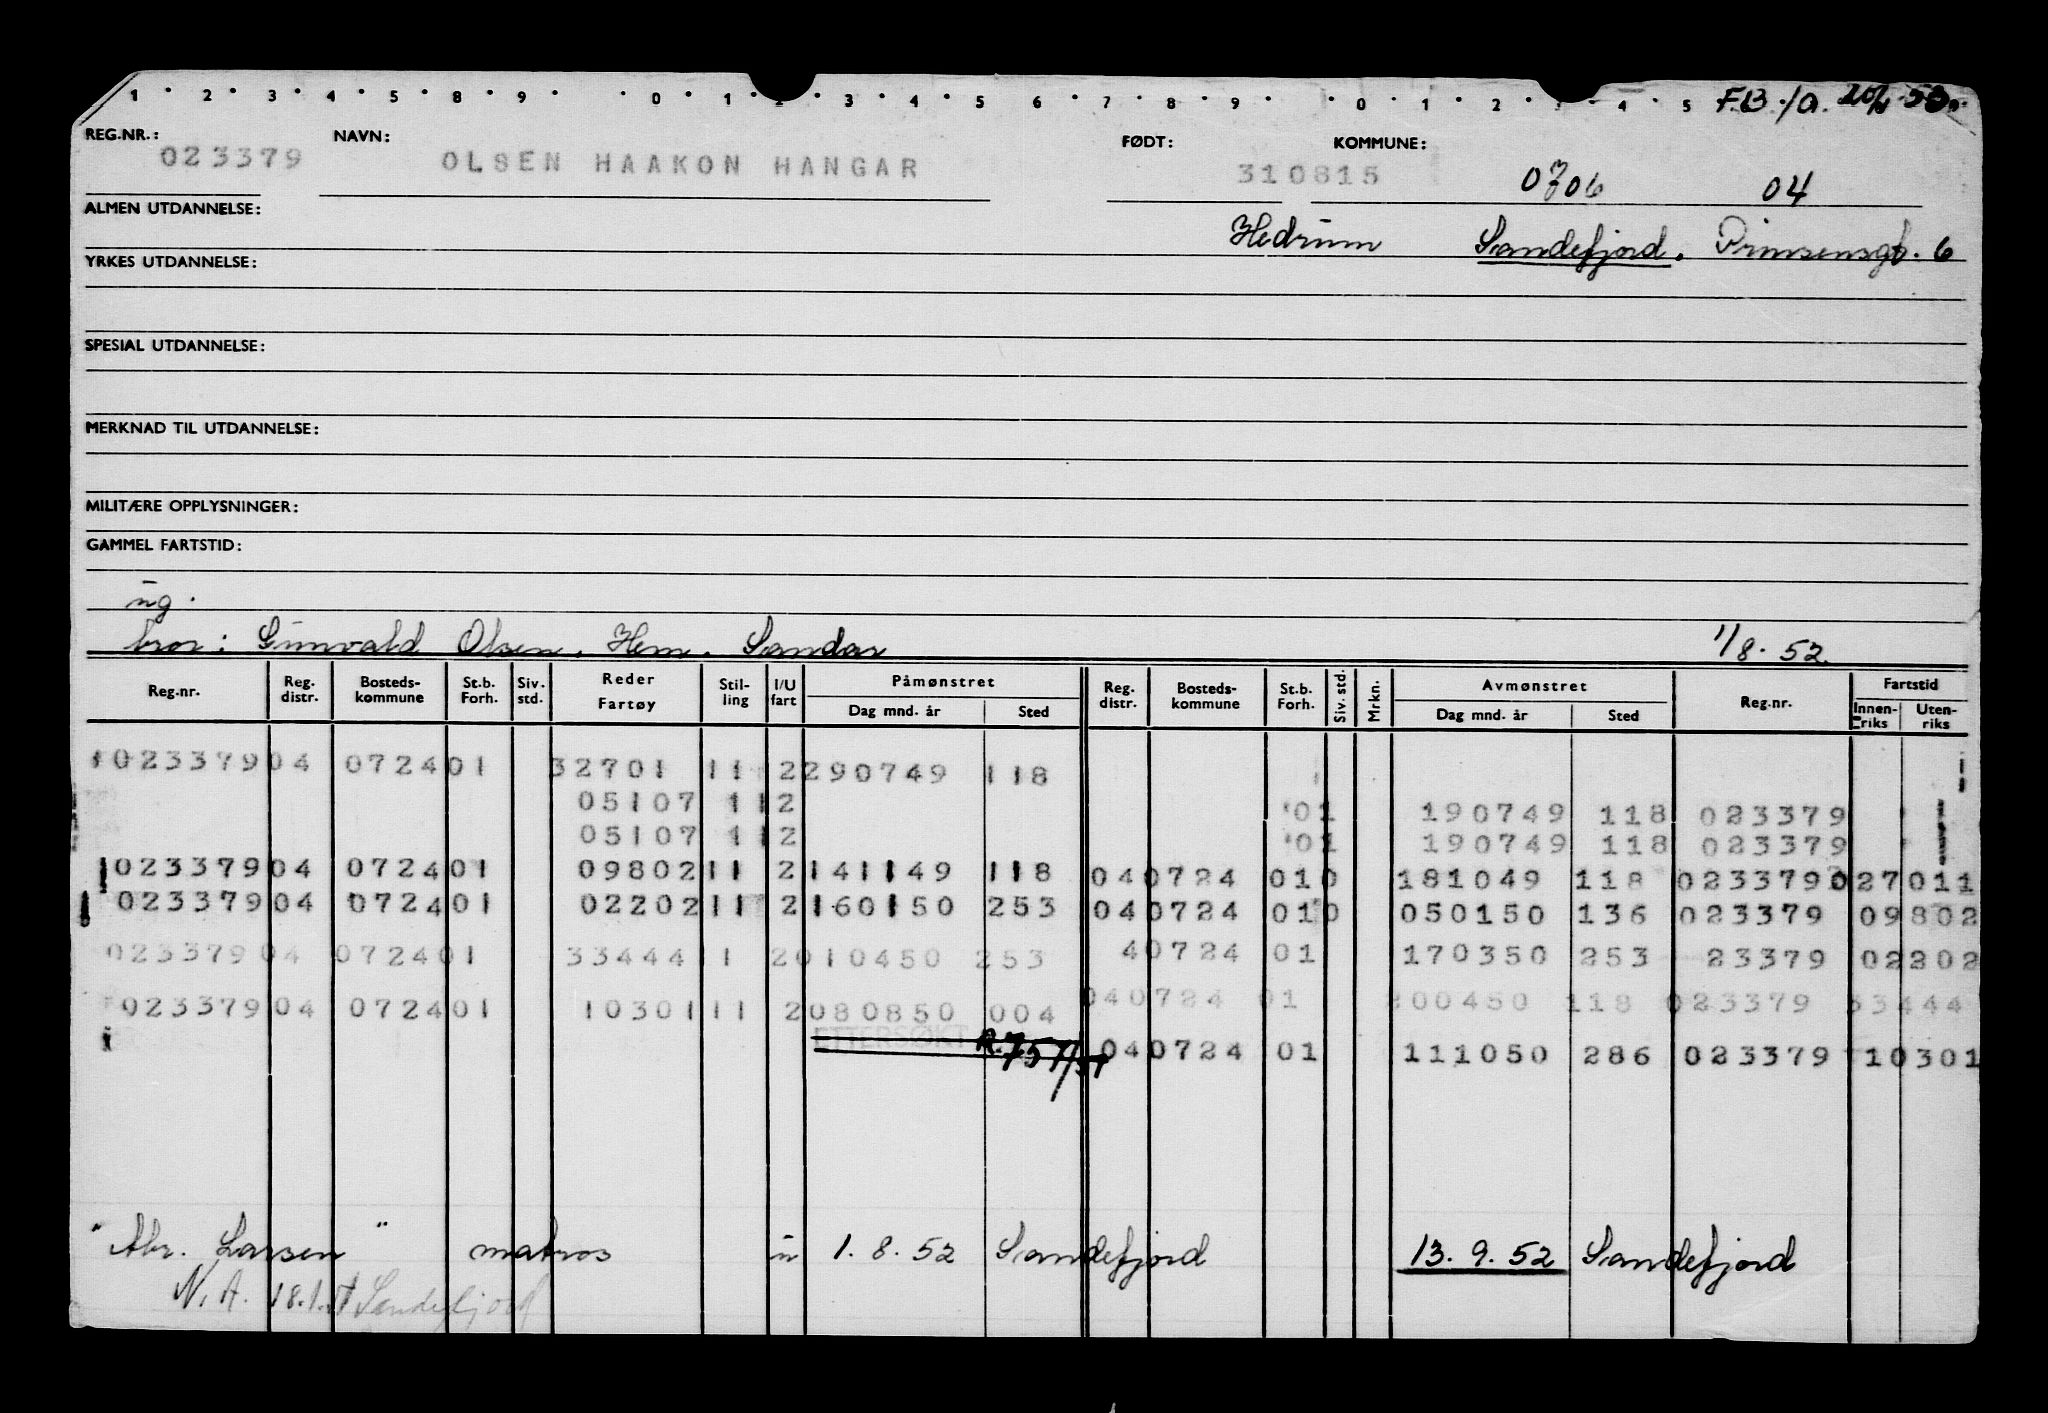 1 · 2 · 3 · 4 · 5 · 8 · 9 · · 0 · 1 · 2 · 3 · 4 · 5 6 · 7 · 8 · 9 · · 0 · 1 · 2 · 3 · 4 · 5 F.B./a.
REG.NR.: NAVN: FØDT: KOMMUNE:
023379 OLSEN HAAKON HANGAR 310815 0706 04
ALMEN UTDANNELSE: Hedrum Sandefjord. Prinsensgt. 6
YRKES UTDANNELSE:
SPESIAL UTDANNELSE:
MERKNAD TIL UTDANNELSE:
MILITÆRE OPPLYSNINGER:
GAMMEL FARTSTID:
ug.
bror: Gunvald Olsen. Hem. Sandar 1/8. 52.
Reg.nr. Reg. distr. Bosteds- kommune St.b. Forh. Siv. std. Reder Fartøy Stil- ling I/U fart Påmønstret Dag mnd. år Sted Reg. distr. Bosteds- kommune St.b. Forh. Siv. std. Mrkn. Avmønstret Dag mnd. år Sted Reg.nr. Fartstid Innen- riks Uten- riks
023379 04 0724 01 32701 11 2 290749 118
05107 11 2 01 190749 118 023379
05107 11 2 01 190749 118 023379
023379 04 0724 01 09802 11 2 141149 118 04 0724 01 0 181049 118 023379 027011
023379 04 0724 01 02202 11 2 160150 253 04 0724 01 0 050150 136 023379 09802
023379 04 0724 01 33444 11 2 010450 253 4 0724 01 170350 253 23379 02202
023379 04 0724 01 10301 11 2 080850 004 04 0724 01 00450 118 023379 33444
ETTERSØKT 04 0724 01 111050 286 023379 10301
"Abr. Larsen" matros u 1. 8. 52 Sandefjord 13. 9. 52 Sandefjord
N.A. Sandefjord